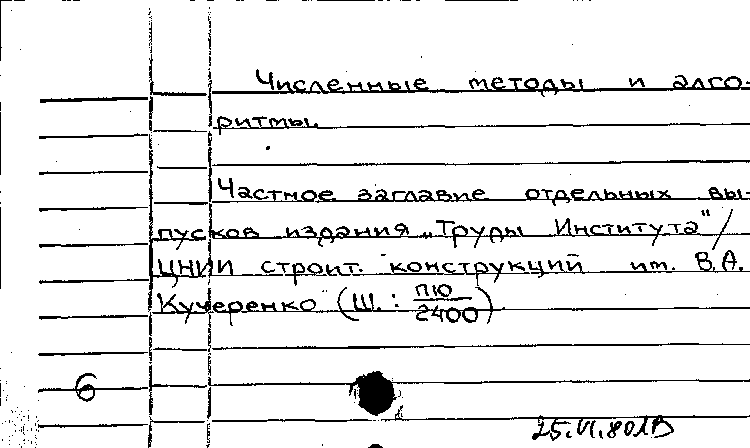 Численные методы и алго-
ритмы.
Частное заглавие отдельных вы-
пусков издания „Труды Института"/
ЦНИИ строит. конструкций им. В.А.
Кучеренко (Ш.: ПЮ/2400)
6
25.VI.80